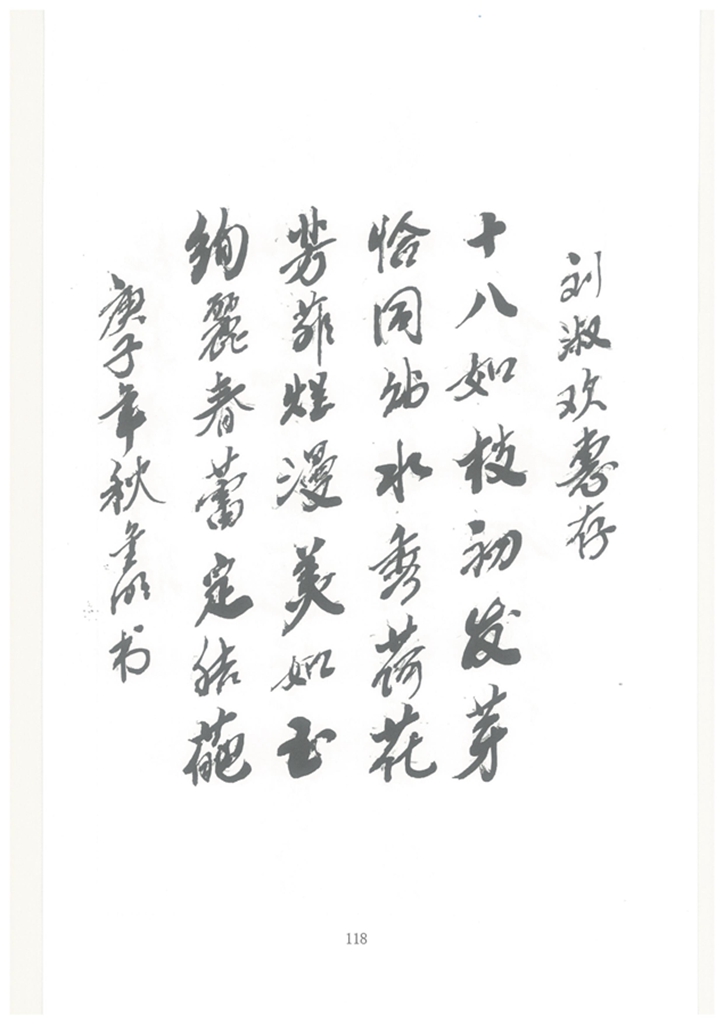 刘淑欢惠存
十八如枝初发芽
恰同水秀荷花
芳菲烂漫美如玉
绚麗春蕾定结葩
庚子年秋金明书
118